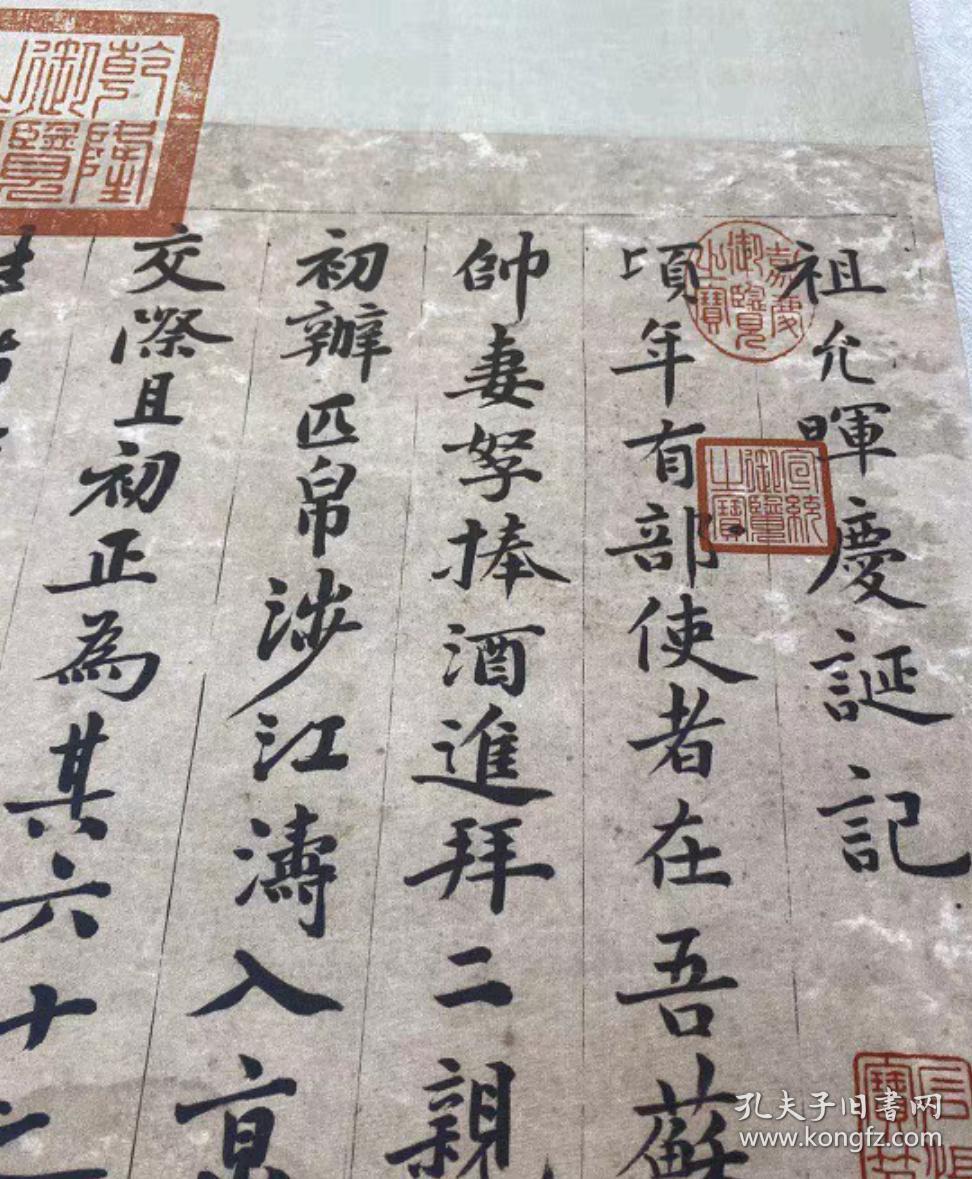 祖允暉慶誕記
頃年有部使者在吾蘇
帥妻孥捧酒進拜二親
初辦匹帛涉江濤入京
交際且初正為其六十二
嘉慶御覽之寶
宣統御覽之寶
乾隆御覽之
孔夫子旧書网
www.kongfz.com